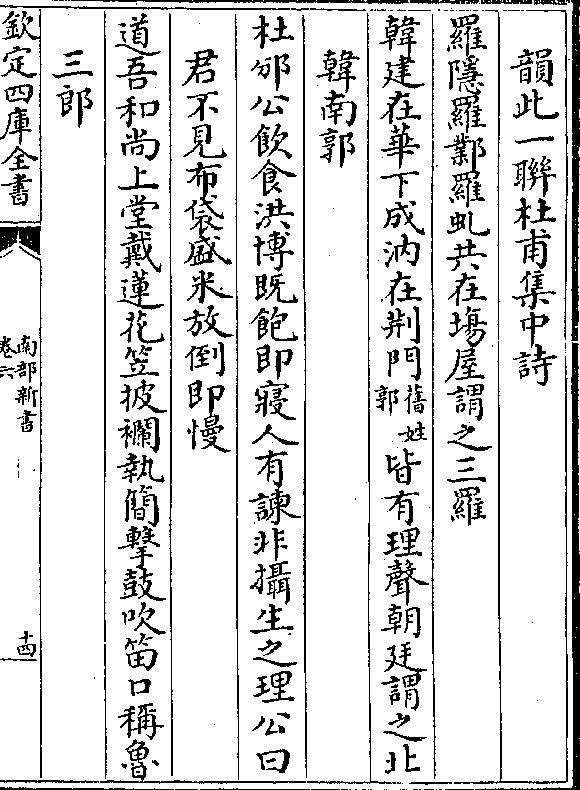 韻此一聯杜甫集中詩
羅隱羅鄴羅虬共在塲屋謂之三羅
韓建在華下成汭在荆門舊姓郭皆有理聲朝廷謂之北
韓南郭
杜邠公飲食洪博既飽即寢人有諫非攝生之理公曰
君不見布袋盛米放倒即慢
道吾和尚上堂戴蓮花笠披襴執簡擊鼓吹笛口稱魯
三郎
欽定四庫全書
南部新書
卷六
十四